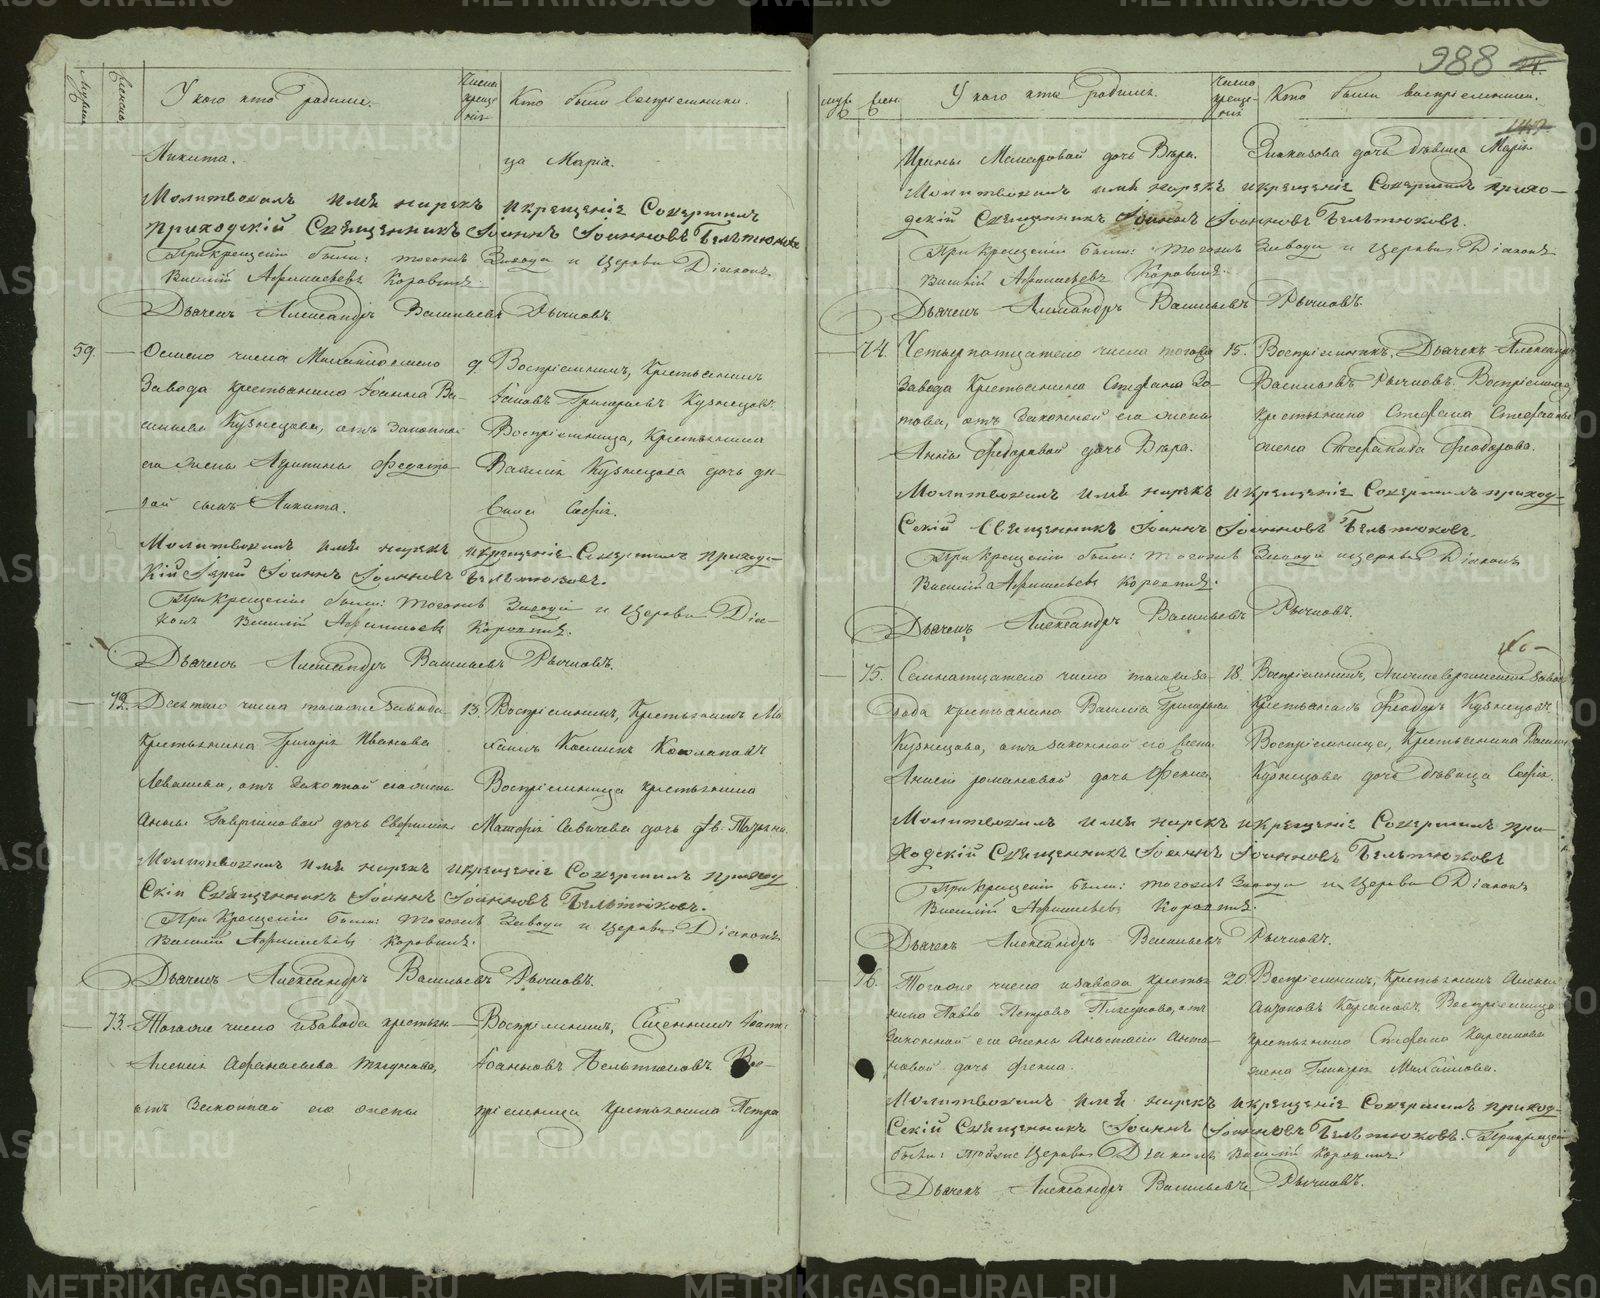 988
мужск. женска.
У кого кто родился.
Числа креще-нія
Кто были воспріемники.
Никита.
ца Марія.
Молитвовалъ имя нарекъ и крещеніе Совершилъ
приходскій Священникъ Іоаннъ Іоанновъ Бельтюковъ
При крещеніи были: тогожъ Завода и Церкви Діаконъ
Василій Афанасьевъ Коровинъ.
Дьячекъ Александръ Васильевъ Рычковъ.
59.
Осмаго числа
Завода крестьянина Іоанна Ва-
сильева Кузнецова, отъ законной
его жены Агрипины Федото-
вой сынъ Никита.
9.
Воспріемникъ, Крестьянинъ
Іоановъ Григорьевъ Кузнецовъ.
Воспріемница, Крестьянина
Василія Кузнецова дочь дѣ-
вица Софія.
Молитвовалъ имя нарекъ и крещеніе Совершилъ приходс-
кій Іерей Іоаннъ Іоанновъ Бельтюковъ.
При крещеніи были: тогожъ Завода и Церкви Діа-
конъ Василій Афанасьевъ Коровинъ.
Дьячекъ Александръ Васильевъ Рычковъ.
72.
Десятаго числа тогоже Завода
Крестьянина Григорія Иванова
Левашева, отъ законной его жены
Анны Гавриловой дочь Евфимія
13.
Воспріемникъ, Крестьянинъ Ми-
хаилъ
Воспріемница крестьянина
дочь дѣв. Татьяна.
Молитвовалъ имя нарекъ и крещеніе Совершилъ приход
скій Священникъ Іоаннъ Іоанновъ Бельтюковъ.
При Крещеніи были: тогожъ Завода и Церкви Діаконъ
Василій Афанасьевъ Коровинъ.
Дьячекъ Александръ Васильевъ Рычковъ.
73.
Тогоже числа и Завода крестьян-
Алексія Афанасьева
отъ Законной его жены
Воспріемникъ, Сщенникъ Іоаннъ
Іоанновъ Бельтюковъ Вос-
пріемница крестьянина Петра
муж. жен.
У кого кто родился.
Числа креще-нія
Кто были воспріемники.
Ирины Макаровой дочь Вѣра.
дочь дѣвица Марія.
Молитвовалъ имя нарекъ и крещеніе Совершилъ прихо-
дскій Священникъ Іоаннъ Іоанновъ Бельтюковъ.
При Крещеніи были: тогожъ Завода и Церкви Діаконъ
Василій Афанасьевъ Коровинъ.
Дьячекъ Александръ Васильевъ Рычковъ.
74.
Четырнатцатаго числа тогоже
Завода Крестьянина Стефана Зо-
това, отъ Законной его жены
Анны Федоровой дочь Вѣра.
15.
Воспріемникъ, Дьячекъ Александръ
Васильевъ Рычковъ. Воспріемница,
крестьянина Стефана
жена Стефанида Феодорова.
Молитвовалъ имя нарекъ и крещеніе Совершилъ приход-
Скій Священникъ Іоаннъ Іоанновъ Бельтюковъ.
При Крещеніи были: тогожъ Завода и церкви Діаконъ
Василій Афанасьевъ Коровинъ.
Дьячекъ Александръ Васильевъ Рычковъ.
75.
Семнатцатаго числа тогоже За-
вода крестьянина Василія Григорьева
Кузнецова, отъ законной его жены
Анисіи романовой дочь Фекла
18.
Воспріемникъ, завода
Крестьянинъ Феодоръ Кузнецовъ
Воспріемница, Крестьянина Василія
Кузнецова дочь дѣвица Софія.
Молитвовалъ имя нарекъ и крещеніе Совершилъ при-
ходскій Священникъ Іоаннъ Іоанновъ Бельтюковъ
При Крещеніи были: тогожъ Завода и Церкви Діаконъ
Василій Афанасьевъ Коровинъ.
Дьячекъ Александръ Васильевъ Рычковъ.
76.
Тогоже числа и завода крестья-
нина Павла Петрова отъ
Законной его жены Анастасіи Анто-
новой дочь Фекла.
20.
Воспріемникъ, Крестьянинъ Алексій
Воспріемница
крестьянина Стефана
жена Гликерія Михайлова.
Молитвовалъ имя нарекъ и крещеніе Совершилъ приход-
скій Священникъ Іоаннъ Іоанновъ Бельтюковъ. При крещеніи
были: тойже Церкви Діаконъ Василій Коровинъ
Дьячекъ Александръ Васильевъ Рычковъ.
METRIKI.GASO-URAL.RU